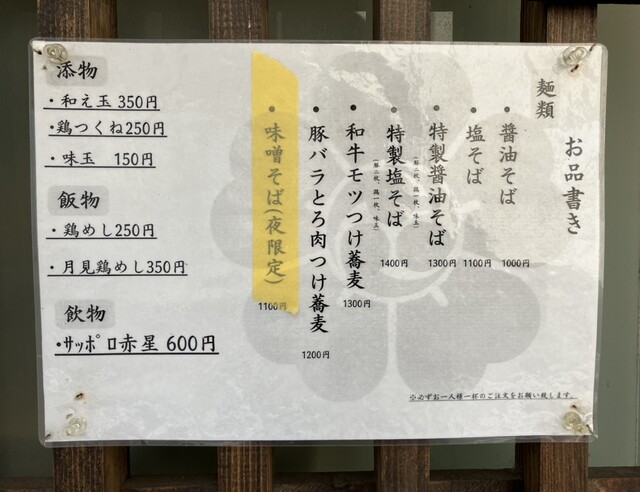 お品書き
麺類
・醤油そば
1000円
・塩そば
1100円
・特製醤油そば
(豚二枚、鶏一枚、味玉)
1300円
・特製塩そば
(豚二枚、鶏一枚、味玉)
1400円
・和牛モツつけ蕎麦
1300円
・豚バラとろ肉つけ蕎麦
1200円
・味噌そば(夜限定)
1100円
添物
・和え玉 350円
・鶏つくね250円
・味玉 150円
飯物
・鶏めし250円
・月見鶏めし350円
飲物
・サッポロ赤星 600円
※必ずお一人様一杯のご注文をお願い致します。